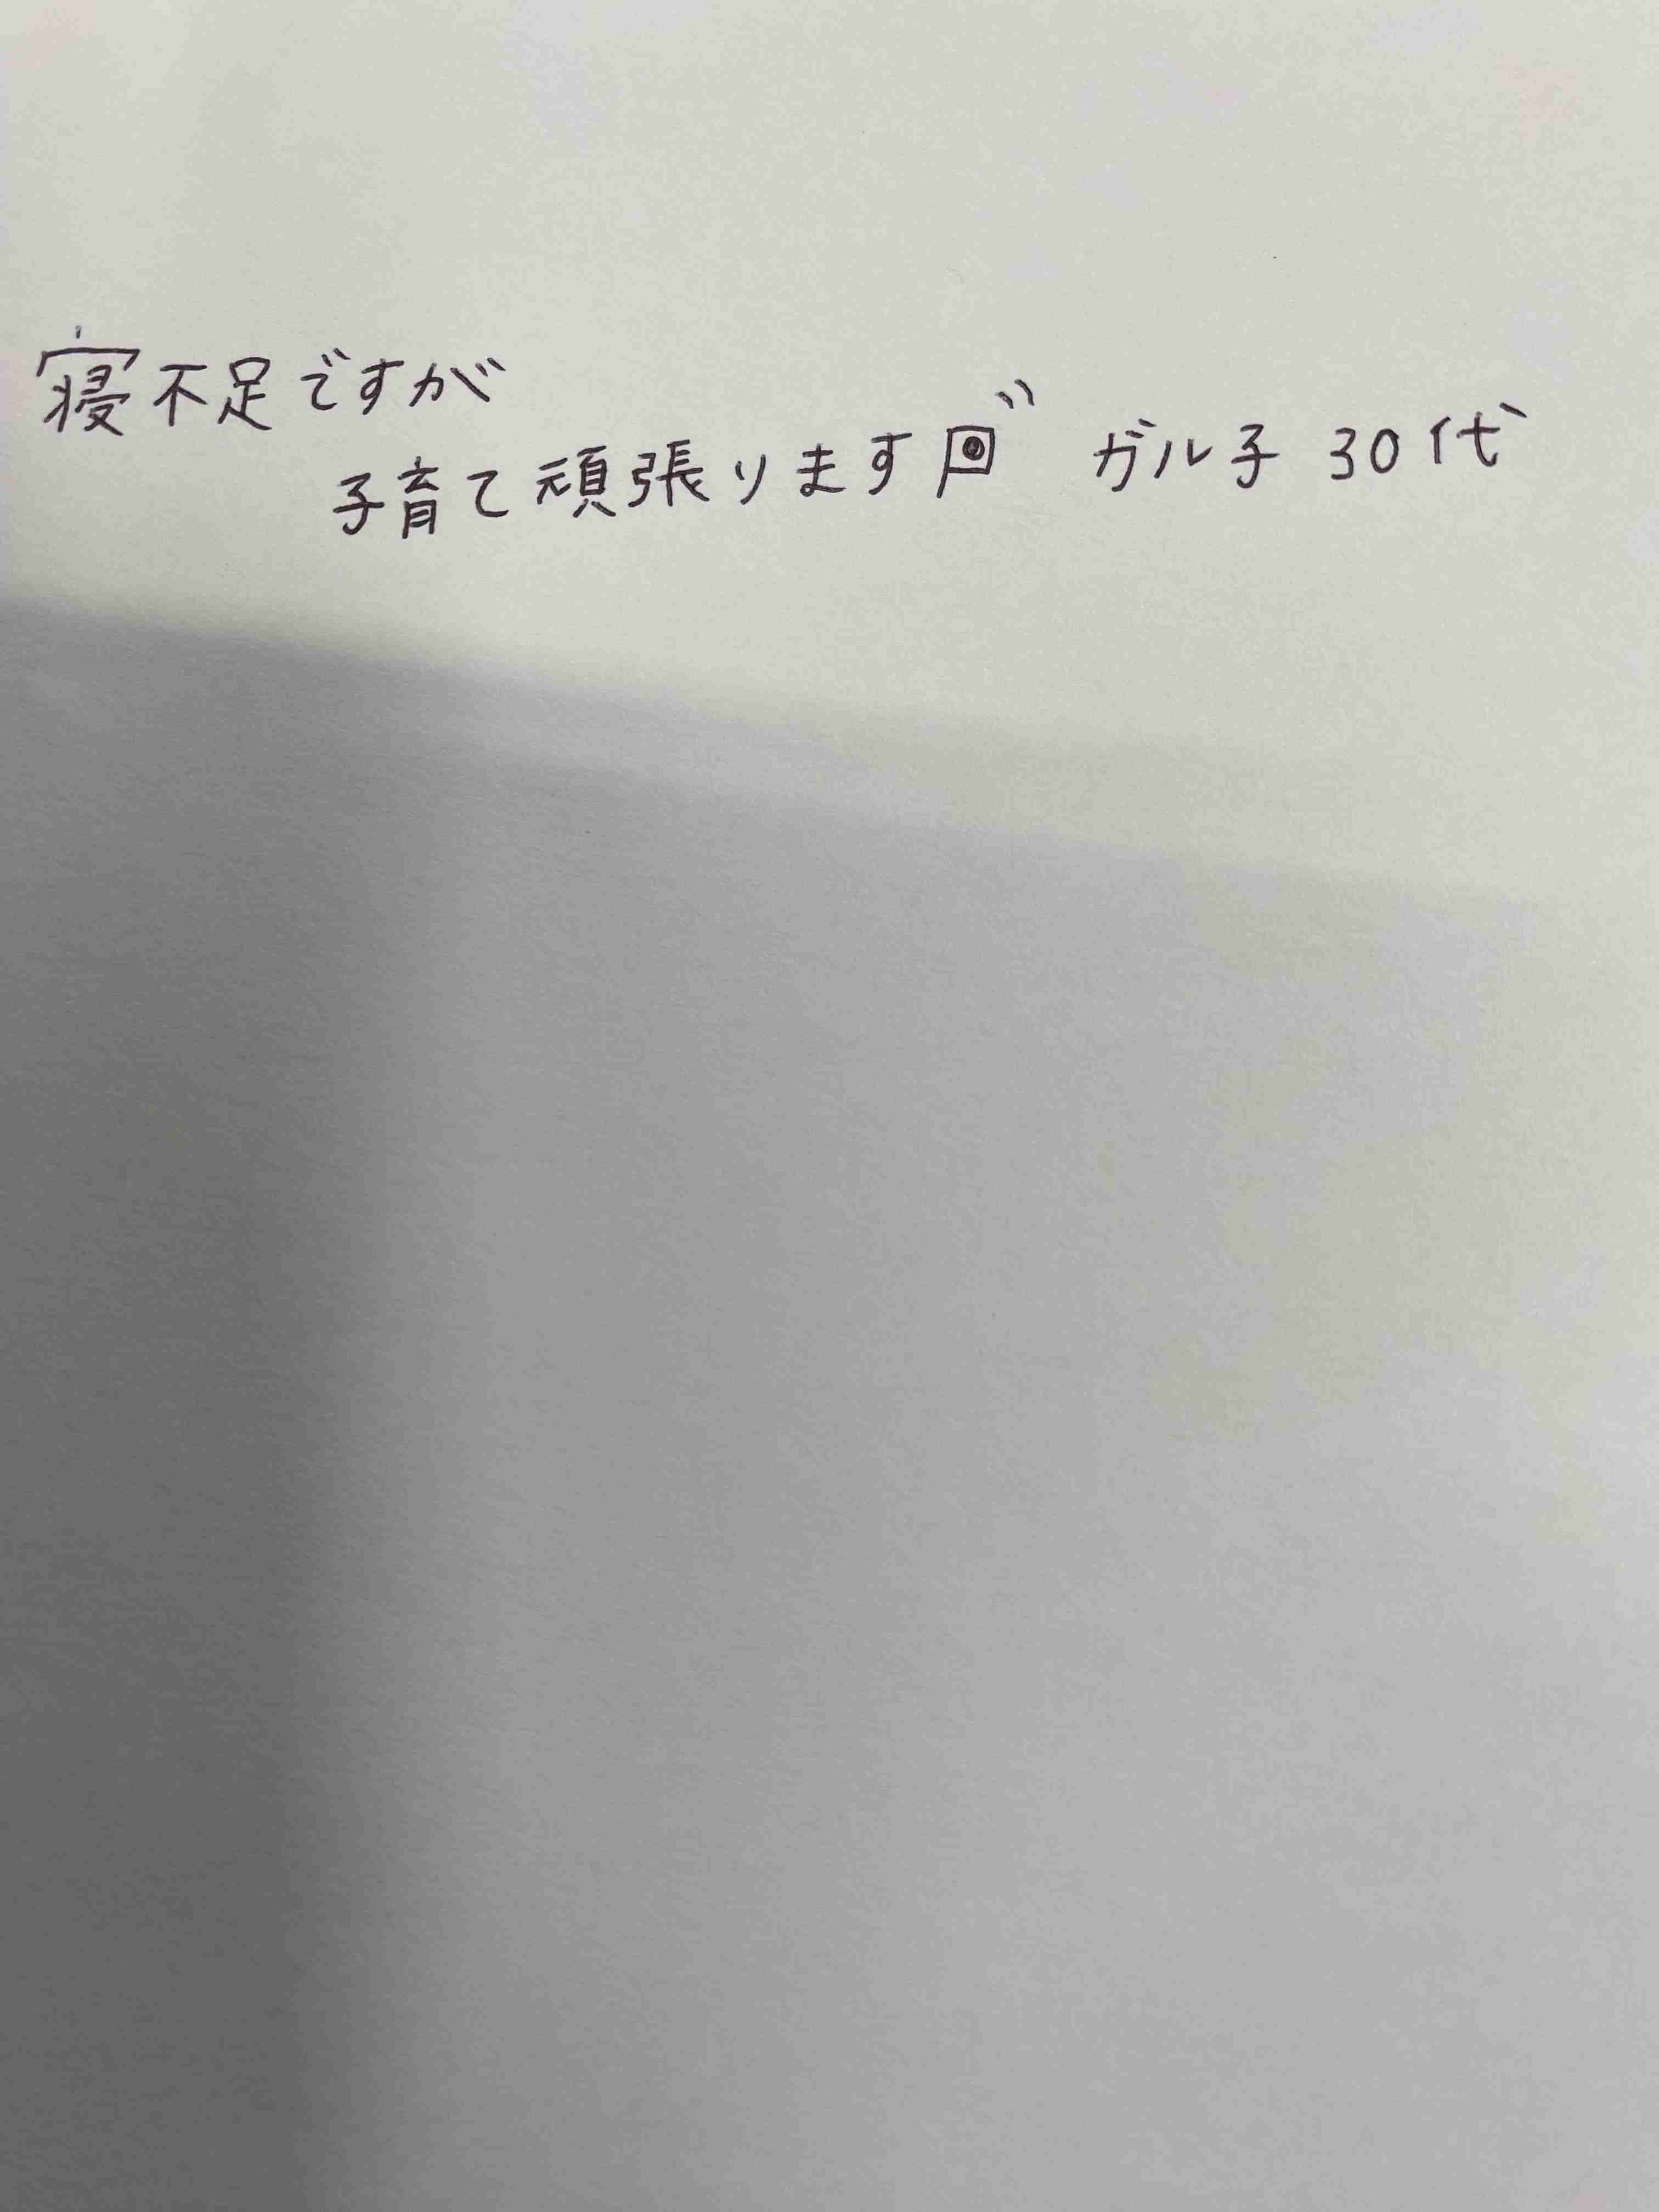 寝不足ですが
子育て頑張ります ガル子 30代